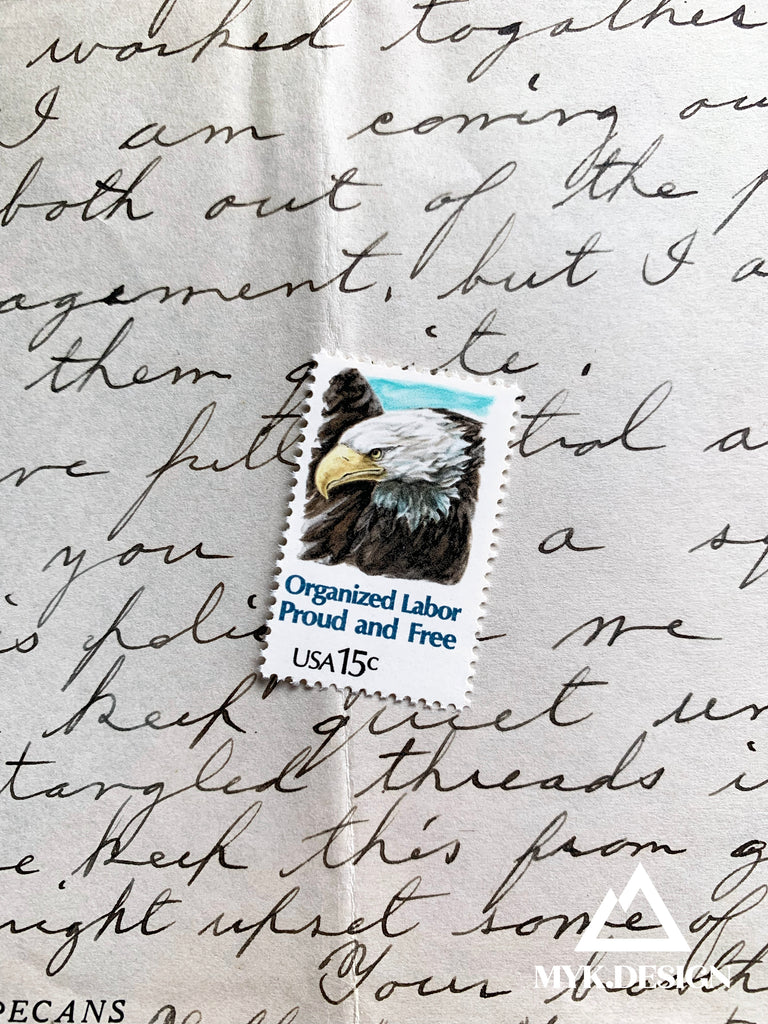 worked togather
I am coming ou
both out of the p
agement, but I a
them q ite.
ve full trol a
you a sq
is polic me
keep quiet un
tangled threads i
e keep this from g
might upset some of
Your both
PECANS
Organized Labor
Proud and Free
USA 15c
MYK.DESIGN